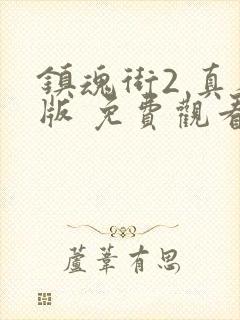 鎮魂街2 真
版 免費觀看
蘆葦有思